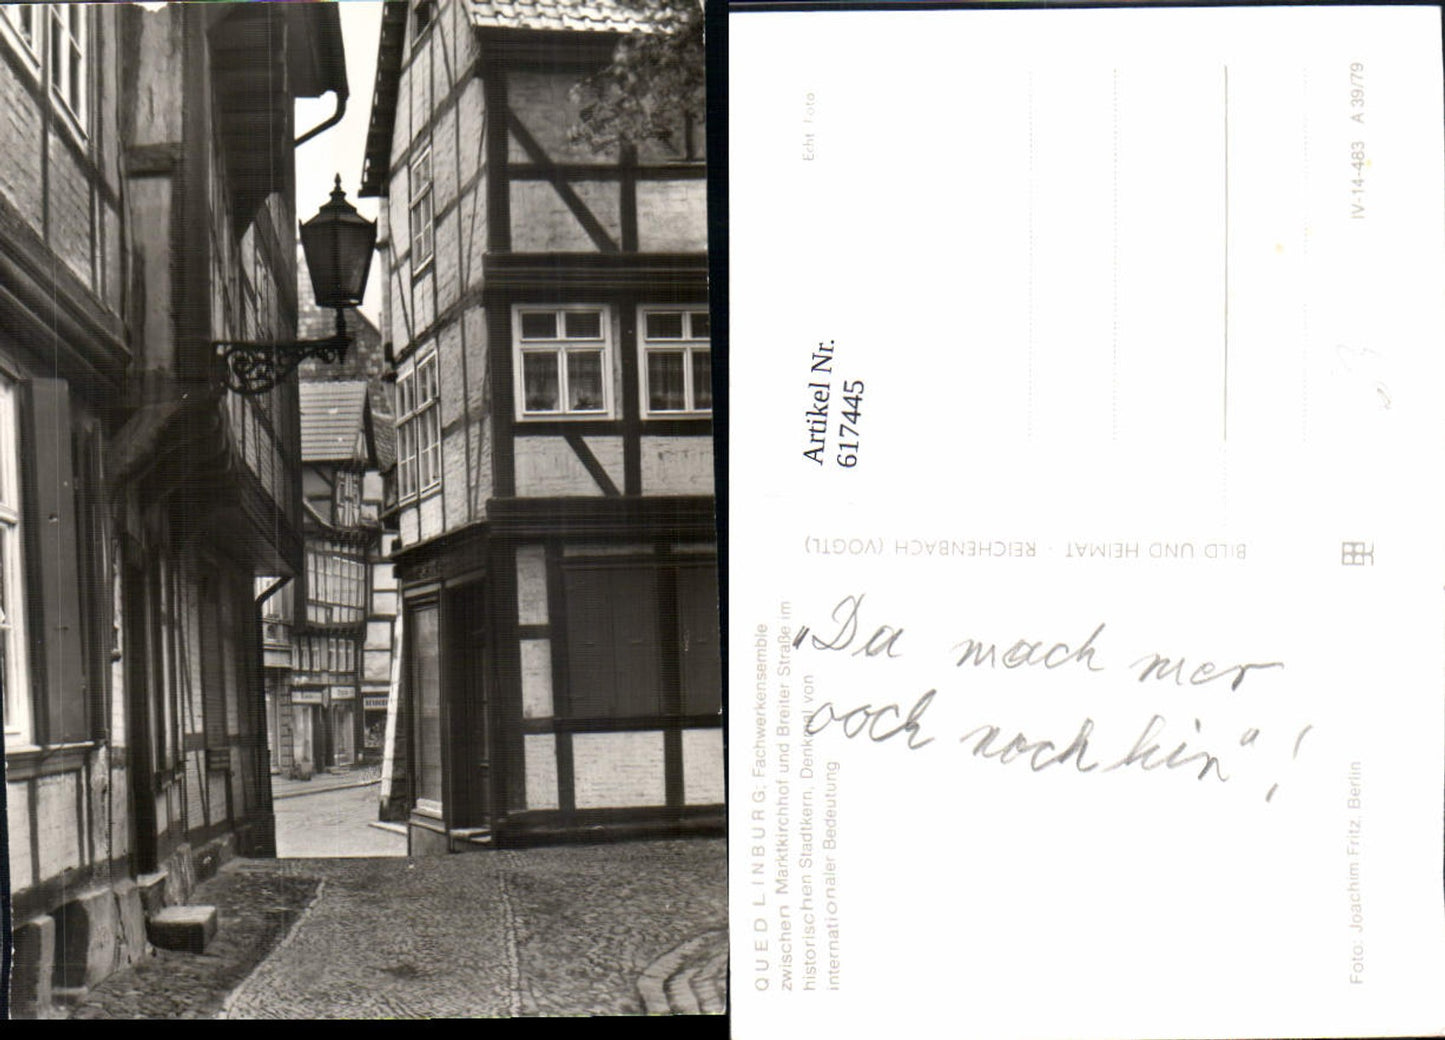 Echt Foto
IV-14-483 A 39/79
Artikel Nr.
617445
BILD UND HEIMAT · REICHENBACH (VOGTL)
QUEDLINBURG: Fachwerkensemble
zwischen Marktkirchhof und Breiter Straße im
historischen Stadtkern, Denkmal von
internationaler Bedeutung
„Da mach mer
ooch noch hin“!
Foto: Joachim Fritz, Berlin